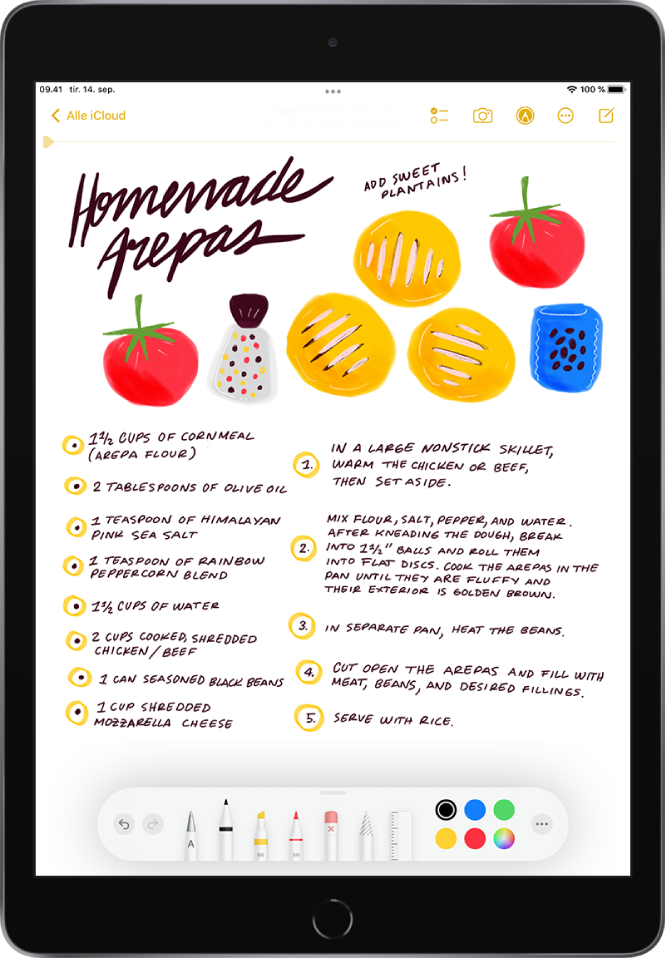 09.41 tir. 14. sep.
100 %
Alle iCloud
Homemade
Arepas
ADD SWEET
PLANTAINS!
1 1/2 CUPS OF CORNMEAL
(AREPA FLOUR)
2 TABLESPOONS OF OLIVE OIL
1 TEASPOON OF HIMALAYAN
PINK SEA SALT
1 TEASPOON OF RAINBOW
PEPPERCORN BLEND
1 1/2 CUPS OF WATER
2 CUPS COOKED, SHREDDED
CHICKEN/BEEF
1 CAN SEASONED BLACK BEANS
1 CUP SHREDDED
MOZZARELLA CHEESE
1. IN A LARGE NONSTICK SKILLET,
WARM THE CHICKEN OR BEEF,
THEN SET ASIDE.
2. MIX FLOUR, SALT, PEPPER, AND WATER.
AFTER KNEADING THE DOUGH, BREAK
INTO 1 1/2" BALLS AND ROLL THEM
INTO FLAT DISCS. COOK THE AREPAS IN THE
PAN UNTIL THEY ARE FLUFFY AND
THEIR EXTERIOR IS GOLDEN BROWN.
3. IN SEPARATE PAN, HEAT THE BEANS.
4. CUT OPEN THE AREPAS AND FILL WITH
MEAT, BEANS, AND DESIRED FILLINGS.
5. SERVE WITH RICE.
A
80
50